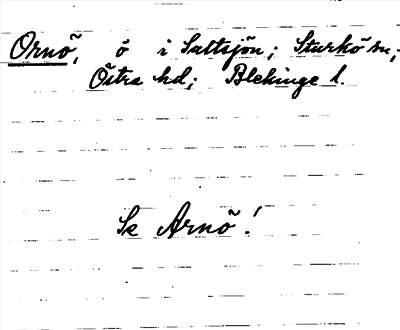 Ornö, ö i Saltsjön; Sturkö sn;
Östra hd; Blekinge l.
Se Arnö!